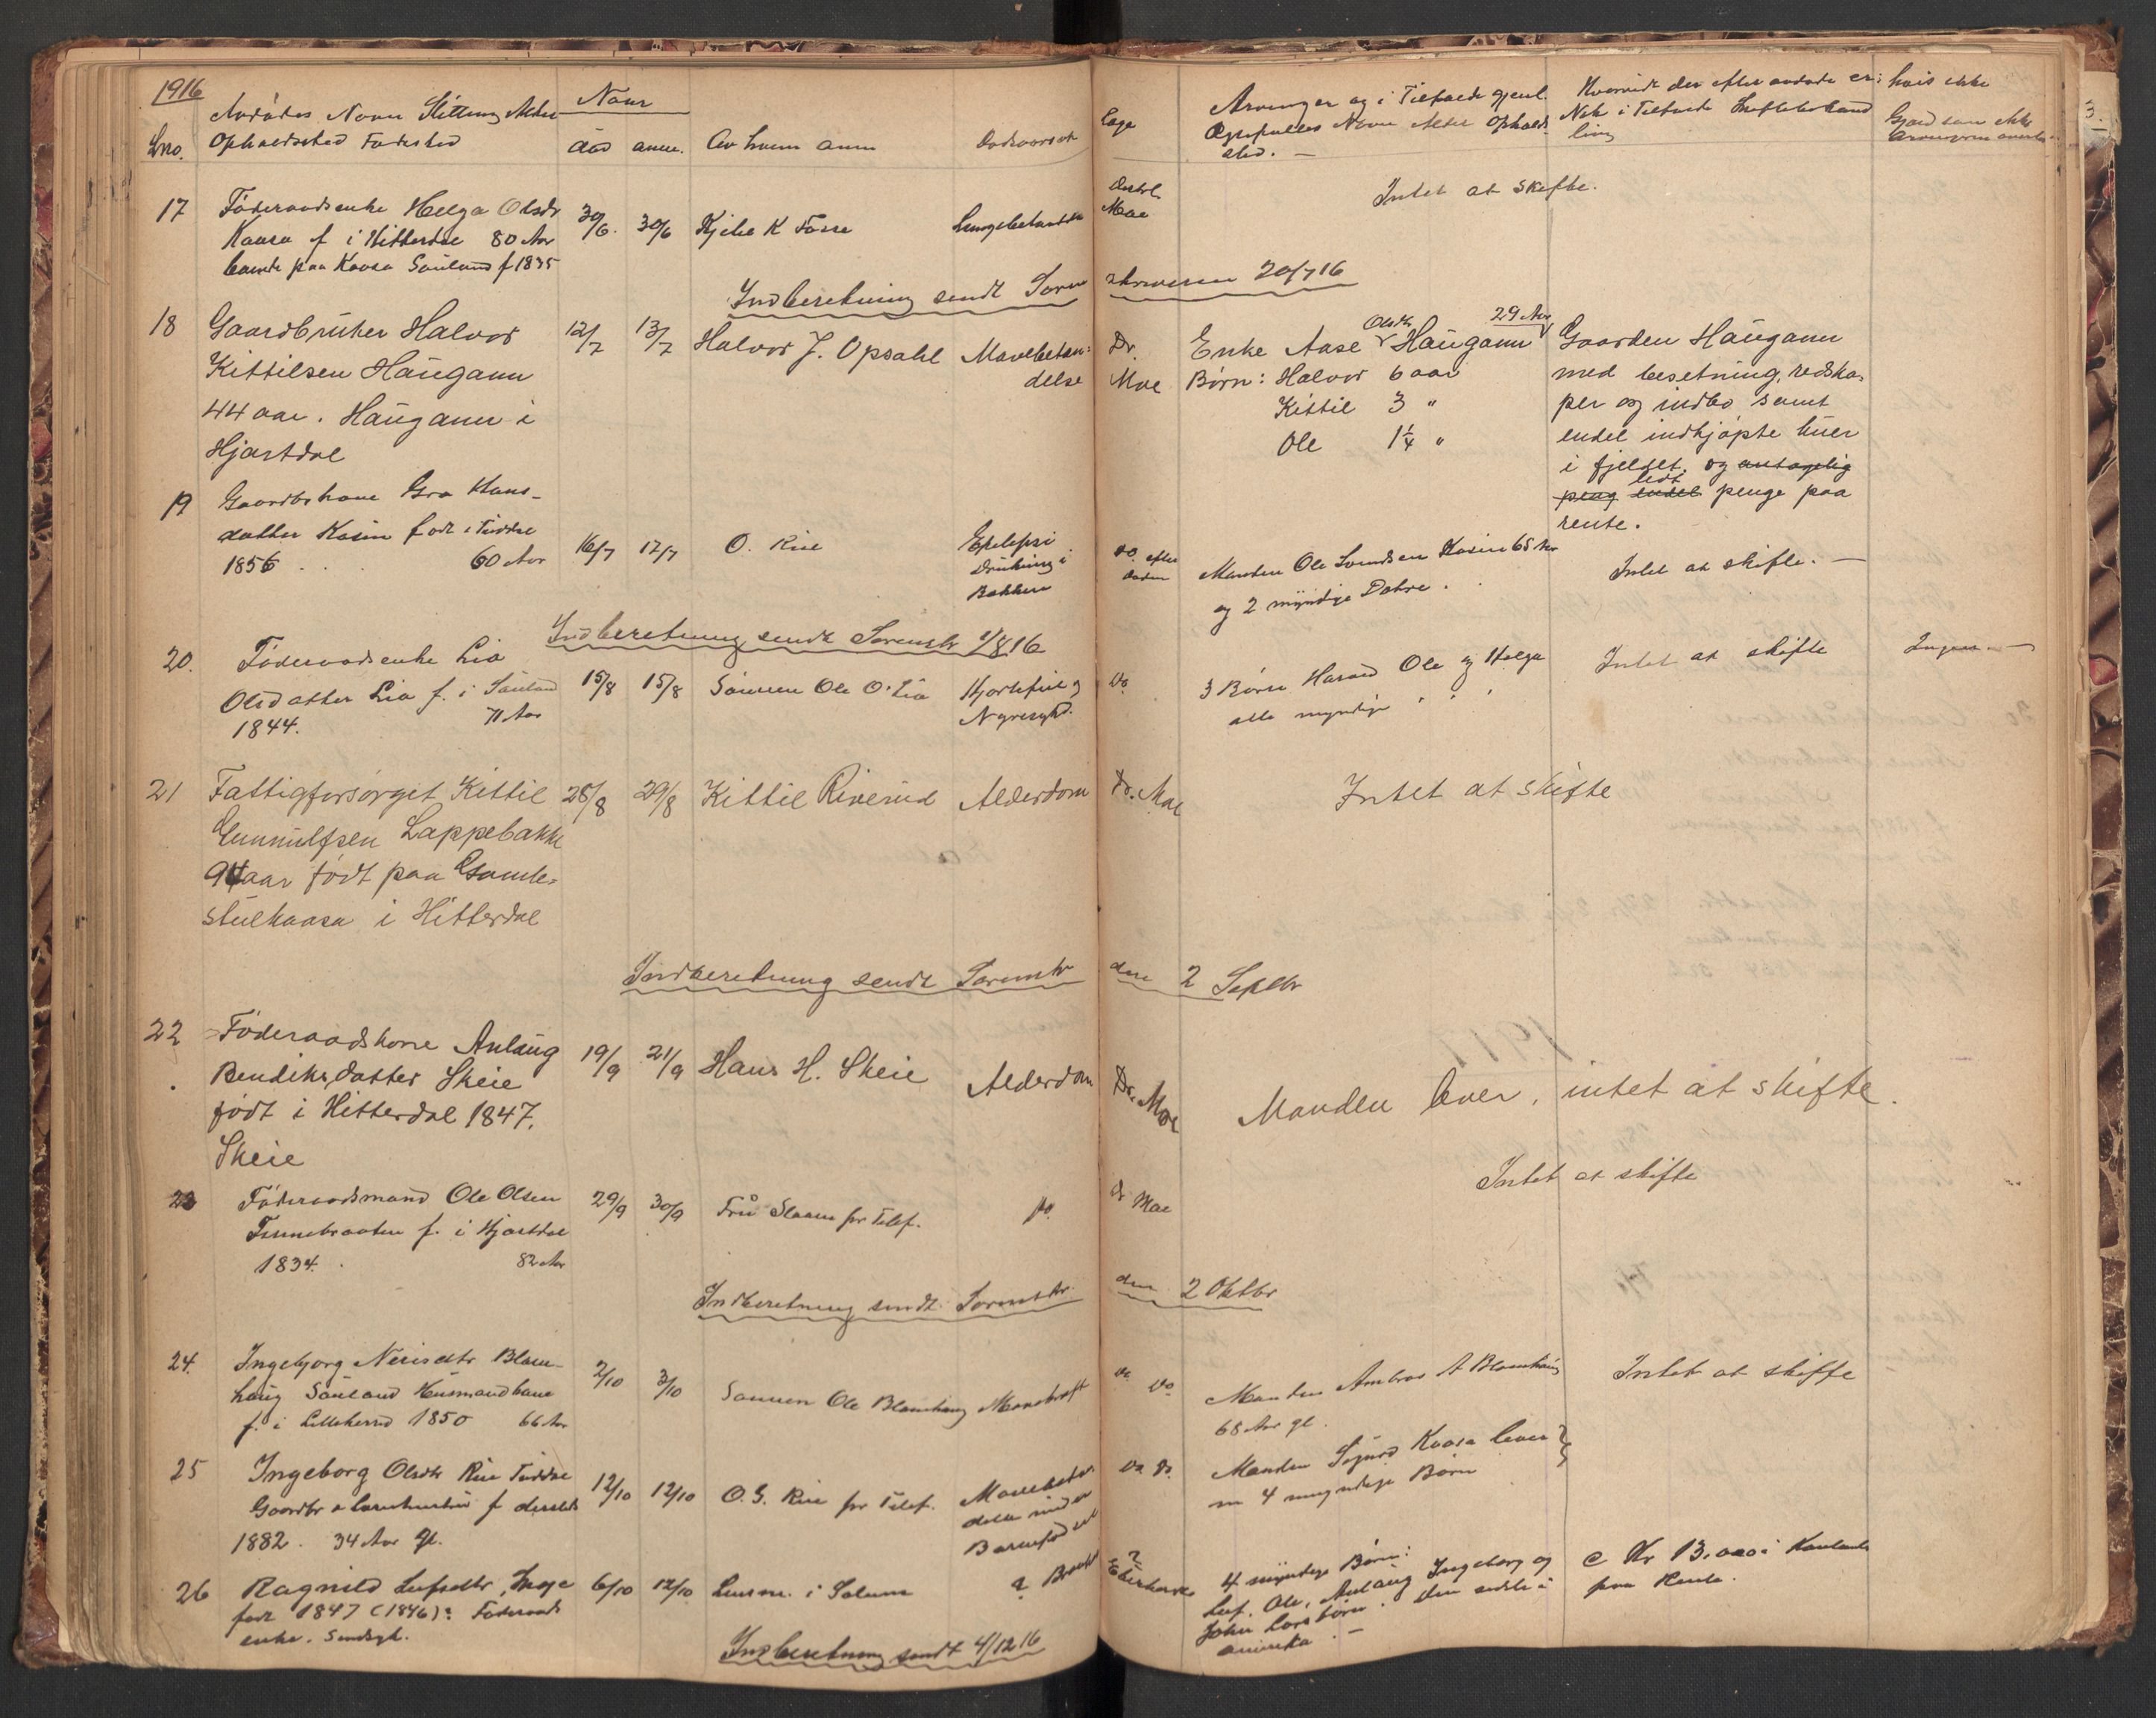 1916
Avdødes Navn Stilling Alder
Opholdssted Fødested
Lno.
Naar
død anm.
Av hvem anm
Dødsaarsak
Læge
Arvinger og i Tilfælde gjenl.
Ægtefælles Navn Alder Opholds
sted. —
Hvorvidt der efter avdøde er
Nok i Tilfælde
hvis ikke
17 Føderaadsenke Helga Olsdr
Kaasa f i Hitterdal 80 Aar
paa Kaasa Sauland f 1835
30/6. 30/6 Kjetil K Fosse
Lungebetændelse
Distrl.
Moe
Intet at skifte.
Indberetning sendt Soren skriveren 20/7 16
18 Gaardbruker Halvor
Kittilsen Haugann
44 aar. Haugann i
Hjartdal
12/7 13/7 Halvor J. Opsahl Mavebetæn=
delse
Dr.
Moe
Enke Aase Olsdtr Haugann 29 Aar
Børn: Halvor 6 aar
Kittil 3 "
Ole 1¼ "
Gaarden Haugann
med besetning, redska-
per og indbo samt
endel indkjøpte huer
i fjeldet, og antagelig
peng endel lidt penge paa
rente.
19 Gaardbrkone Gro Hans-
datter Kosin født i Tuddal
1856 60 Aar
16/7 17/7 O. Rue
Epilepsi
Drukning i
Bækken
Do. efter
Døden
Manden Ole Svendsen Kosin 65 Aar
og 2 myndige Døtre.
Intet at skifte. —
Indberetning sendt Sorenskr 1/8 16
20. Føderaadsenke Liv
Olsdatter Lia f. i Sauland
1844. 71 Aar
15/8 15/8 Sønnen Ole O. Lia Hjertefeil og
Nyresygd.
Do
3 Børn Harald Ole og Helga
alle myndige
Intet at skifte
Ingen. —
21 Fattigforsørget Kittil
Gunnulfsen Lappebakke
94 aar født paa Gamle-
stulkaasa i Hitterdal
28/8 29/8 Kittil Riverud Alderdom
Dr. Moe
Intet at skifte
Indberetning sendt Sorenskr den 2 Septbr
22 Føderaadskone Anlaug
Bendiksdatter Skeie
født i Hitterdal 1847.
Skeie
19/9 21/9 Hans H. Skeie Alderdom
Dr. Moe
Manden lever, intet at skifte.
23 Føderaadsmand Ole Olsen
Tinnebraaten f. i Hjartdal
1834. 82 Aar
29/9 30/9 Fru Slaaen pr Telef. Do.
Dr Moe
Intet at skifte
Indberetning sendt Sorenskr. den 2 Oktbr
24. Ingebjorg Nerisdtr Blom-
haug Sauland Husmandkone
f. i Lilleherred 1850 66 Aar
2/10 3/10 Sønnen Ole Blomhaug Mavekræft
do Do
Manden Ambros A Blomhaug
68 Aar gl.
Intet at skifte
25 Ingeborg Olsdtr Rue Tuddal
f dersteds
1882. 34 Aar gl.
12/10 12/10 O. G. Rue pr Telef. Mavebetæn
delse under
Barnefødsel
Do Do.
Manden Sigurd Kaasa lever
m 4 umyndige Børn
26 Ragnild Leifsdtr,
født 1847 (1846)? Føderaads
enke.
6/10 12/10 Lensm. i Solum
?
?
4 myndige Børn:
Leif, Ole, Anlaug Ingeborg og
John Larsbørn. Den sidste i
Amerika. —
c Kr 13.000 i Kontanter
paa Rente.
Indberetning sendt 4/12 16